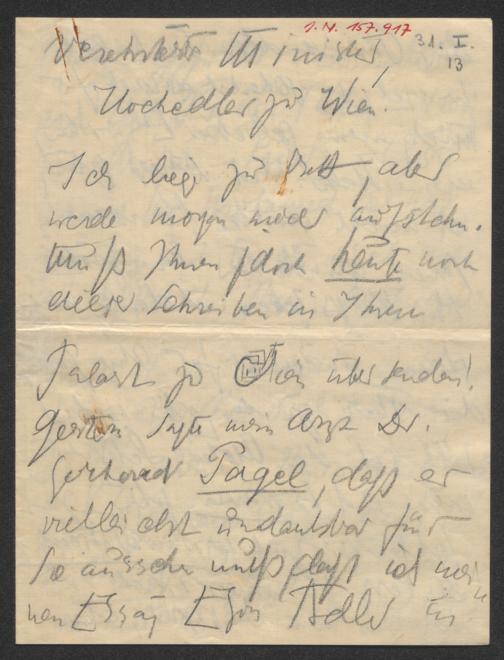 I. N. 157.917
31. I.
13
Verehrtester Minister,
Hochedler zu Wien.
Ich lieg zu Bett, aber
werde morgen wieder aufstehn.
Muß Ihnen jedoch heute noch
dieses Schreiben in Ihren
Palast zu Wien übersenden!
Gestern sagte mein Arzt Dr.
Gerhard Pagel, daß er
vielleicht undankbar für
Sie aussehn muß, daß ich mei-
nen Essay Egon Adler in